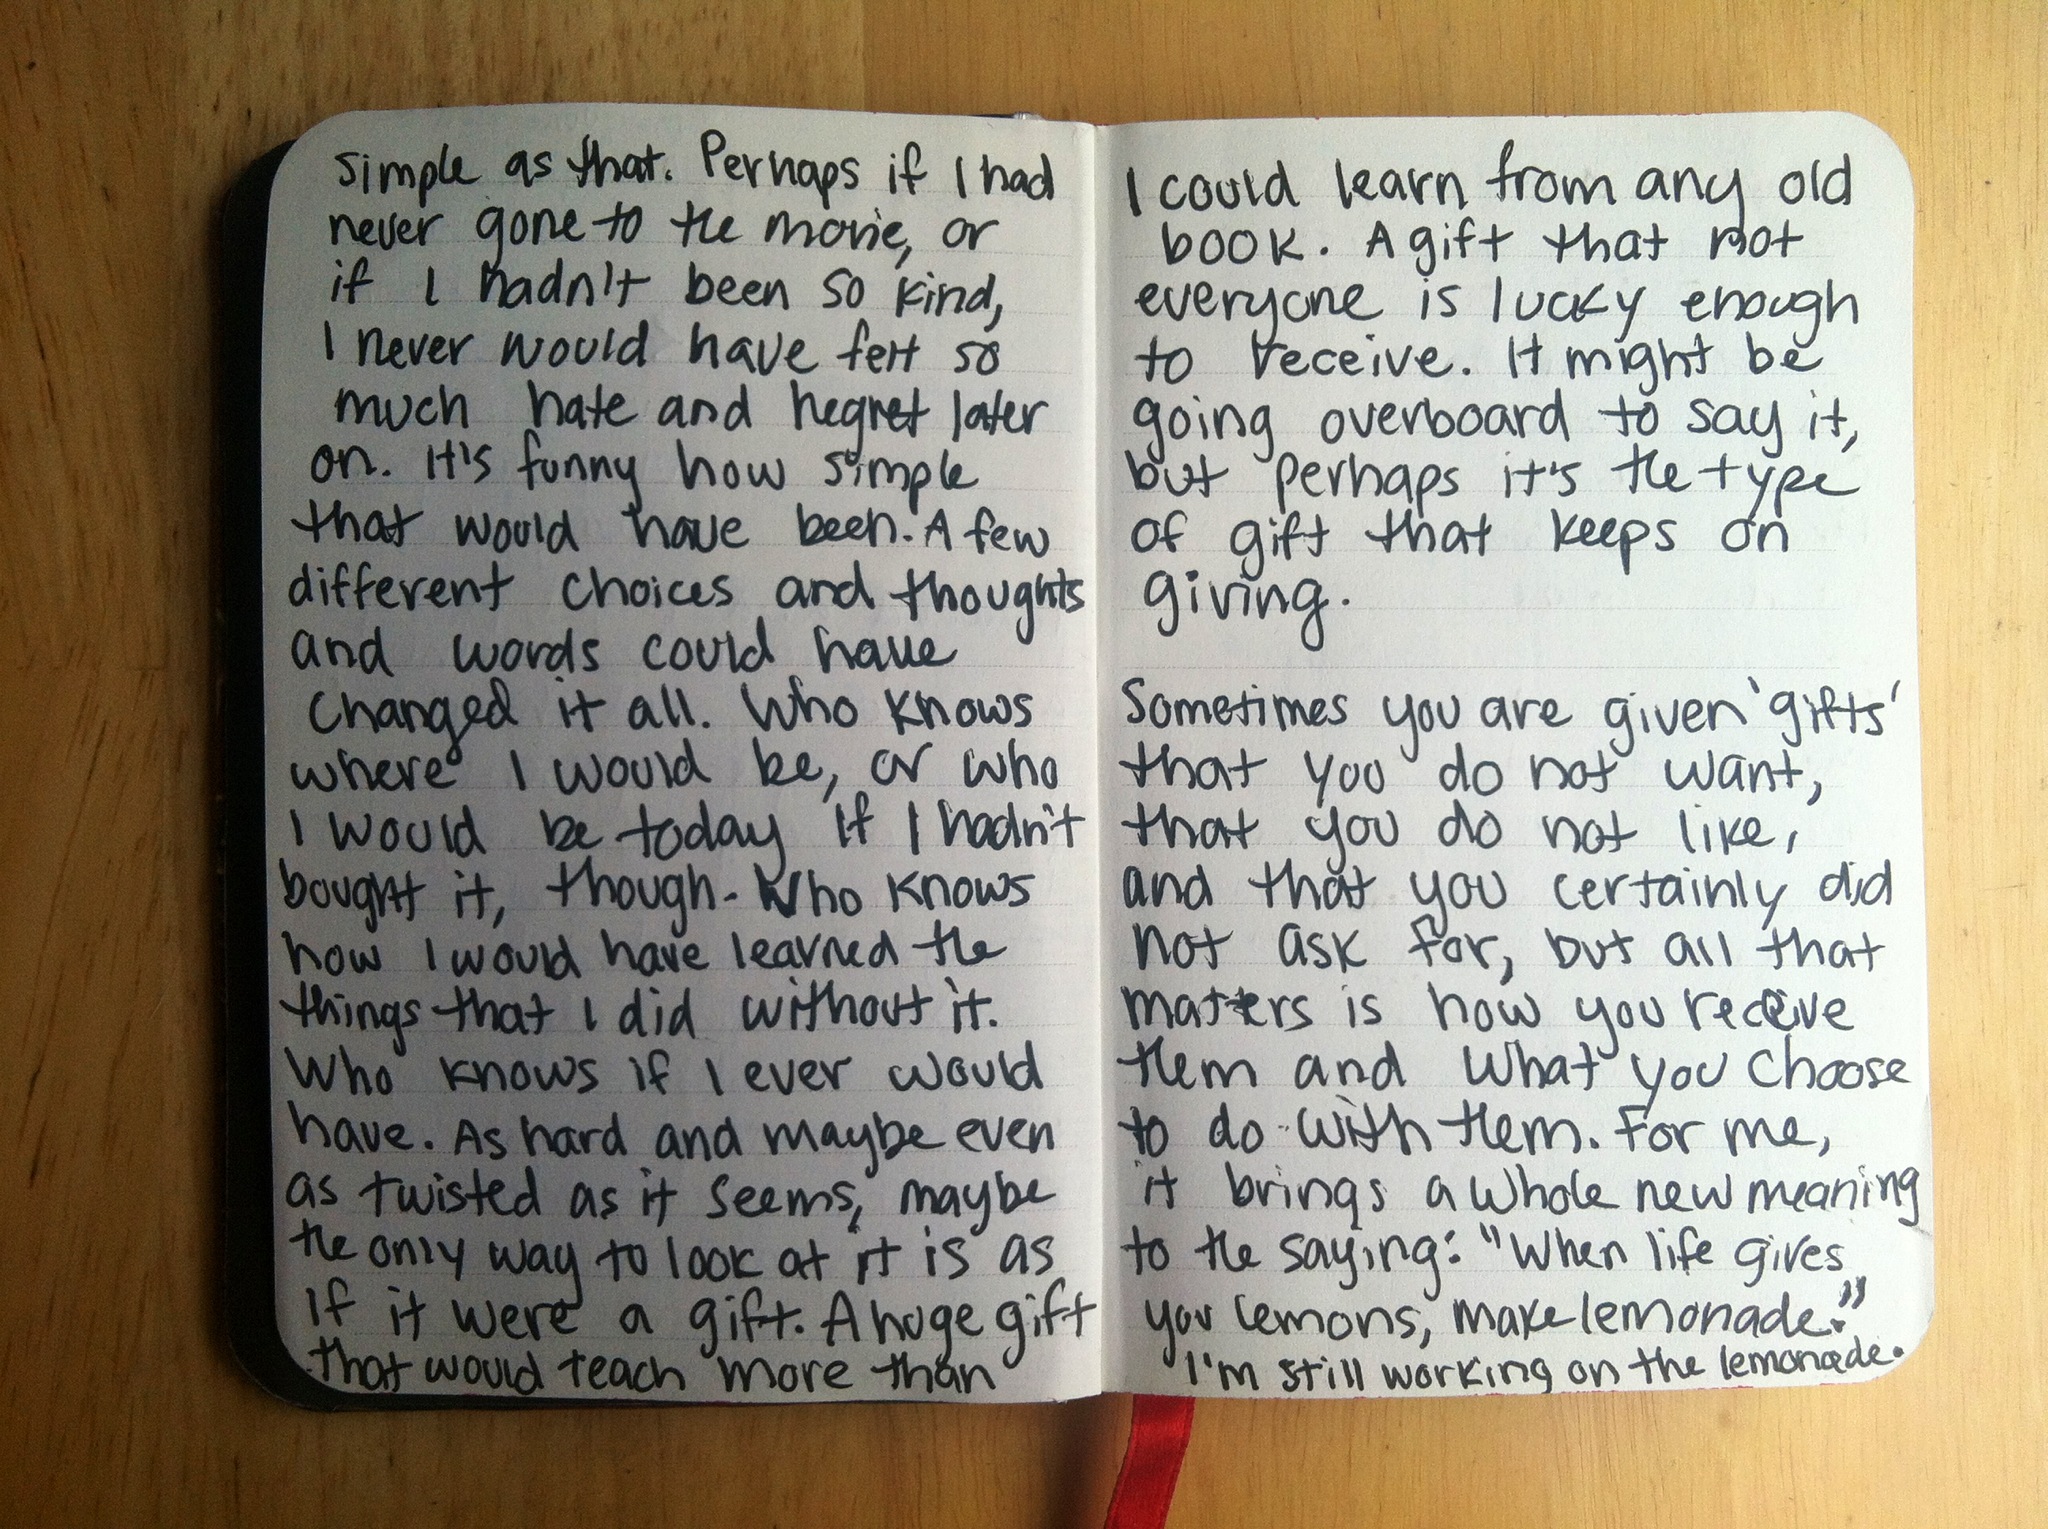 simple as that. Perhaps if I had
never gone to the movie, or
if I hadn't been so kind,
I never would have felt so
much hate and hegret later
on. It's funny how simple
that would have been. A few
different choices and thoughts
and words could have
changed it all. Who knows
where I would be, or who
I would be today if I hadn't
bought it, though. Who knows
how I would have learned the
things that I did without it.
Who knows if I ever would
have. As hard and maybe even
as twisted as it seems, maybe
the only way to look at it is as
if it were a gift. A huge gift
that would teach more than
I could learn from any old
book. A gift that not
everyone is lucky enough
to receive. It might be
going overboard to say it,
but perhaps it's the type
of gift that keeps on
giving.
Sometimes you are given 'gifts'
that you do not want,
that you do not like,
and that you certainly did
not ask for, but all that
matters is how you receive
them and what you choose
to do with them. For me,
it brings a whole new meaning
to the saying: "When life gives
you lemons, make lemonade."
I'm still working on the lemonade.